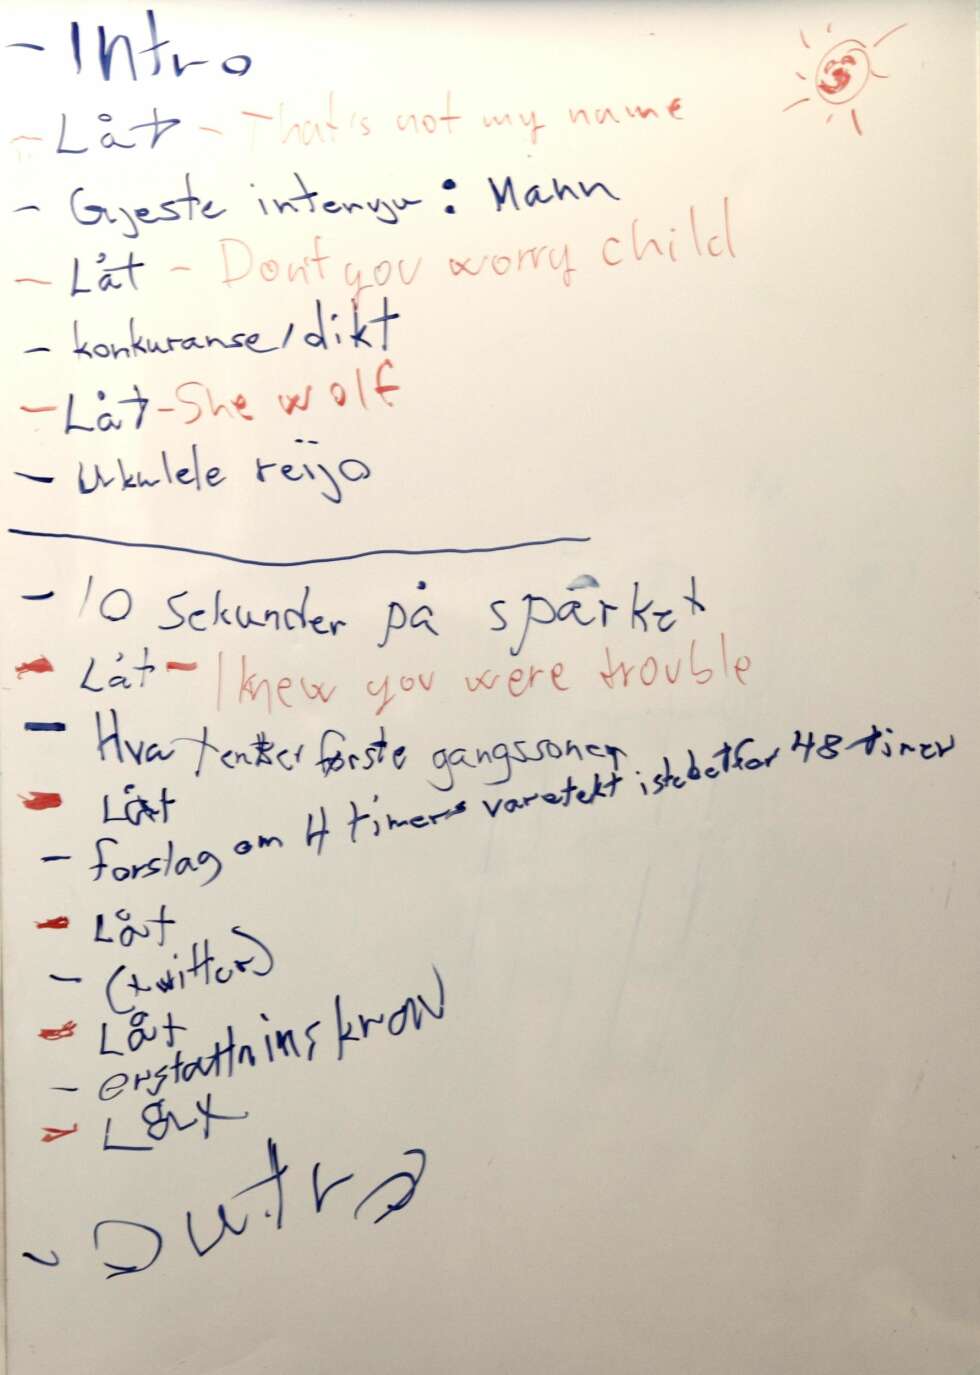 - Intro
- Låt - That's not my name
- Gjeste intervju: Mann
- Låt - Don't you worry child
- konkuranse/dikt
- Låt - She wolf
- Ukulele reijo
- 10 Sekunder på spärket
- Låt - I knew you were trouble
- Hva tenker første gangssoner
- Låt
- forslag om 4 timers varetekt istebetfor 48 timer
- Låt
- (twitter)
- Låt
- erstattninskrav
- Låt
- Outro